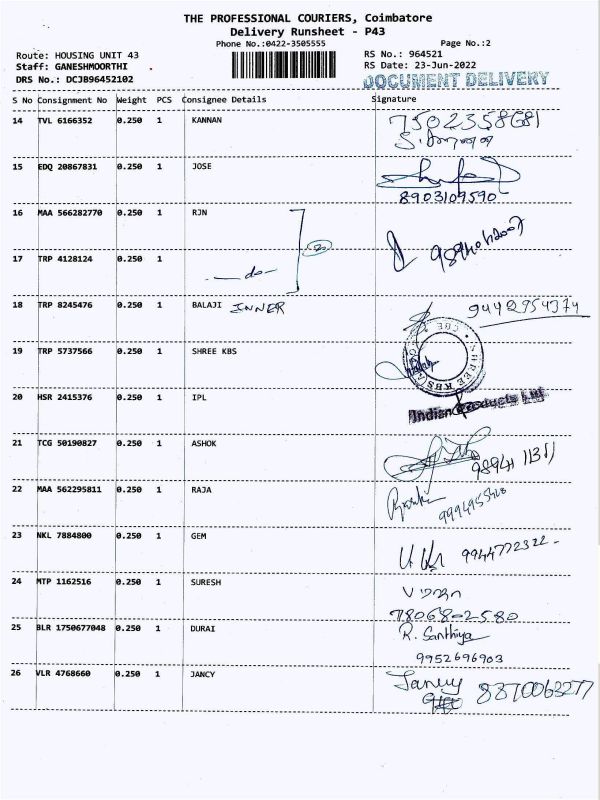 THE PROFESSIONAL COURIERS, Coimbatore
Delivery Runsheet - P43
Phone No.:0422-3505555
Page No.:2
Route: HOUSING UNIT 43
RS No.: 964521
Staff: GANESHMOORTHI
RS Date: 23-Jun-2022
DRS No.: DCJB96452102
DOCUMENT DELIVERY
S No Consignment No Weight PCS Consignee Details Signature
14 TVL 6166352 0.250 1 KANNAN 7502358681
15 EDQ 20867831 0.250 1 JOSE
8903109590
16 MAA 566282770 0.250 1 RJN
17 TRP 4128124 0.250 1
—do—
18 TRP 8245476 0.250 1 BALAJI INNER 9442954374
19 TRP 5737566 0.250 1 SHREE KBS
SHREE KBS
CBE
20 HSR 2415376 0.250 1 IPL
Indian Products Ltd
21 TCG 50190827 0.250 1 ASHOK
98941 11311
22 MAA 562295811 0.250 1 RAJA
23 NKL 7884800 0.250 1 GEM
9944772322 -
24 MTP 1162516 0.250 1 SURESH
78068-02580
25 BLR 1750677048 0.250 1 DURAI R. Santhiya
9952696903
26 VLR 4768660 0.250 1 JANCY Jancy
8870063277